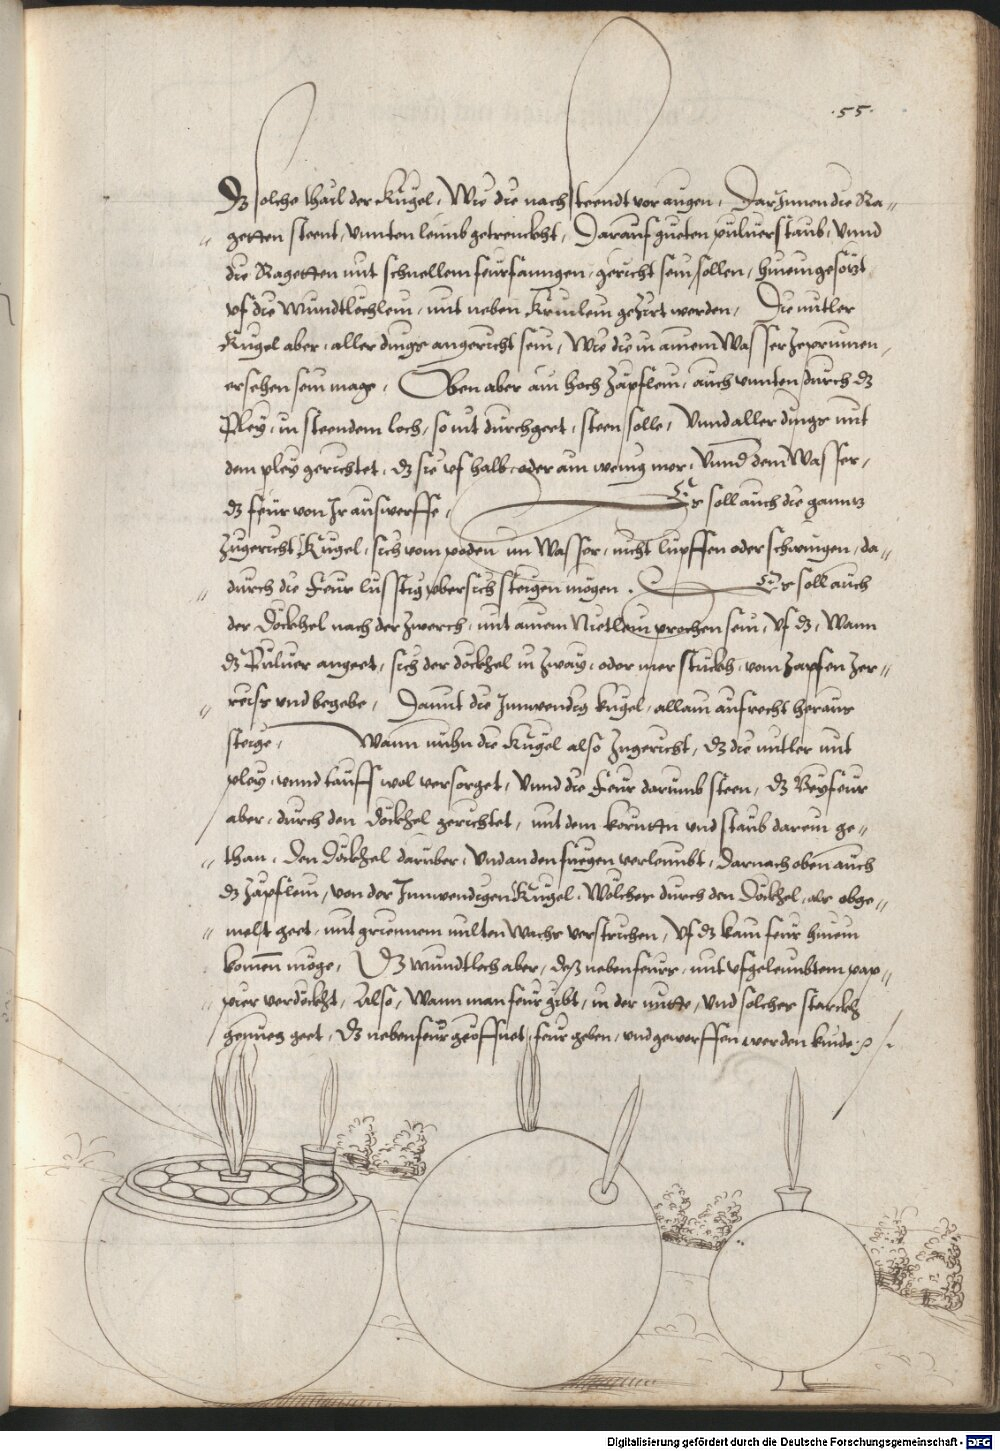 ·55·
Dz solche thail der Kugel, Wie die nach steendt vor augen, Darinnen die Ra=
getten steent, Vnnten leimb getrenckht, Darauf gueten puluerstaub, Vnnd
die Ragetten mit schnellem feürfanngen, gericht sein sollen, hinein gesötzt
vf die Mundtlöchlein, mit neben Kruglein geziert werden, Die mitler
Kugel aber, aller dings angericht sein, Wie die in ainem Wasser zeprinnen,
ersehen sein mage, Oben aber ain hoch Zäpflein, auch vnnten durch dz
Pley, in steendem loch, so nit durchgeet, steen solle, Vnnd aller dings mit
dem pley gerichtet, dz sie vf halb, oder ain wenig mer, Vnnd dem Wasser,
dz feür von Ir auswerffe,
Es soll auch die ganntz
Zugericht Kugel, sich vom poden im Wasser, nicht lupffen oder schwingen, da=
durch die Feür lusstig vbersich steigen mögen.
Es soll auch
der Döckhel nach der Zwerch, mit ainem Nietlein prochen sein, Vf dz, Wann
dz Puluer angeet, sich der döckhel in Zway, oder mer stuckh, vom Zapfen Zer=
reiss vnd begebe, Damit die Innwendig kugel, allain aufrecht heraus
steige,
Wann nuhn die Kugel also Zugericht, dz die mitler mit
pley, vnnd tauff wol versorget, Vnnd die Feür darumb steen, dz Beyfeür
aber, durch den Döckhel gerichtet, mit dem kornttn vnd staub darein ge=
than, den Döckhel darüber, Vnd an den fuegen verleimbt, Darnach oben auch
dz Zäpflein, von der Innwendigen Kugel, Wölcher durch den Döckhel, als obge=
melt geet, mit griennem milten wachs verstrichen, Vf dz kain feür hinein
komen möge, Dz mundtloch aber, deß nebenfeürs, mit vfgeleimbtem pap=
pier verdöckht, Also, Wann man feür gibt, in der mitte, vnd solches starckh
genueg geet, Dz nebenfeür geöffnet, feür geben, vnd geworffen werden kinde
Digitalisierung gefördert durch die Deutsche Forschungsgemeinschaft - DFG